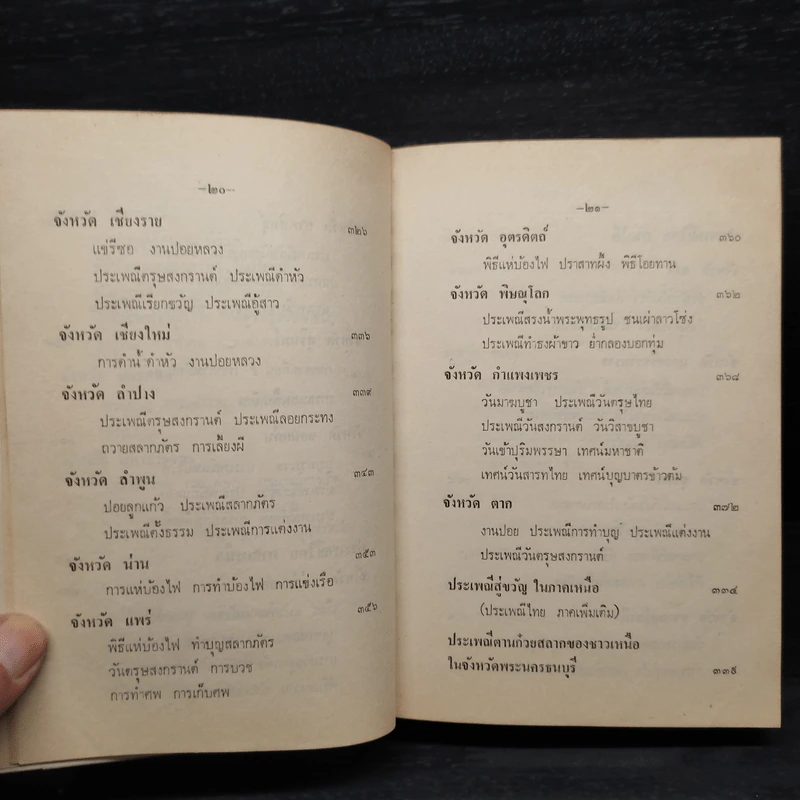 —๒๐—
จังหวัด เชียงราย ๓๒๖
แข่รีซอ งานปอยหลวง
ประเพณีตรุษสงกรานต์ ประเพณีดำหัว
ประเพณีเรียกขวัญ ประเพณีอู้สาว
จังหวัด เชียงใหม่ ๓๓๖
การดำน้ำ ดำหัว งานปอยหลวง
จังหวัด ลำปาง ๓๓๙
ประเพณีตรุษสงกรานต์ ประเพณีลอยกระทง
ถวายสลากภัตร การเลี้ยงผี
จังหวัด ลำพูน ๓๔๓
ปอยลูกแก้ว ประเพณีสลากภัตร
ประเพณีตั้งธรรม ประเพณีการแต่งงาน
จังหวัด น่าน ๓๕๓
การแห่บ้องไฟ การทำบ้องไฟ การแข่งเรือ
จังหวัด แพร่ ๓๕๖
พิธีแห่บ้องไฟ ทำบุญสลากภัตร
วันตรุษสงกรานต์ การบวช
การทำศพ การเก็บศพ
—๒๑—
จังหวัด อุตรดิตถ์ ๓๖๐
พิธีแห่บ้องไฟ ปราสาทผึ้ง พิธีโอยทาน
จังหวัด พิษณุโลก ๓๖๒
ประเพณีสรงน้ำพระพุทธรูป ชนเผ่าลาวโซ่ง
ประเพณีทำธงผ้าขาว ย่ำกลองบอกทุ่ม
จังหวัด กำแพงเพชร ๓๖๘
วันมาฆบูชา ประเพณีวันตรุษไทย
ประเพณีวันสงกรานต์ วันวิสาขบูชา
วันเข้าปุริมพรรษา เทศน์มหาชาติ
เทศน์วันสารทไทย เทศน์บุญบาตรข้าวต้ม
จังหวัด ตาก ๓๗๒
งานปอย ประเพณีการทำบุญ ประเพณีแต่งงาน
ประเพณีวันตรุษสงกรานต์
ประเพณีสู่ขวัญ ในภาคเหนือ ๓๓๔
(ประเพณีไทย ภาคเพิ่มเติม)
ประเพณีตานก๋วยสลากของชาวเหนือ
ในจังหวัดพระนครธนบุรี ๓๓๙